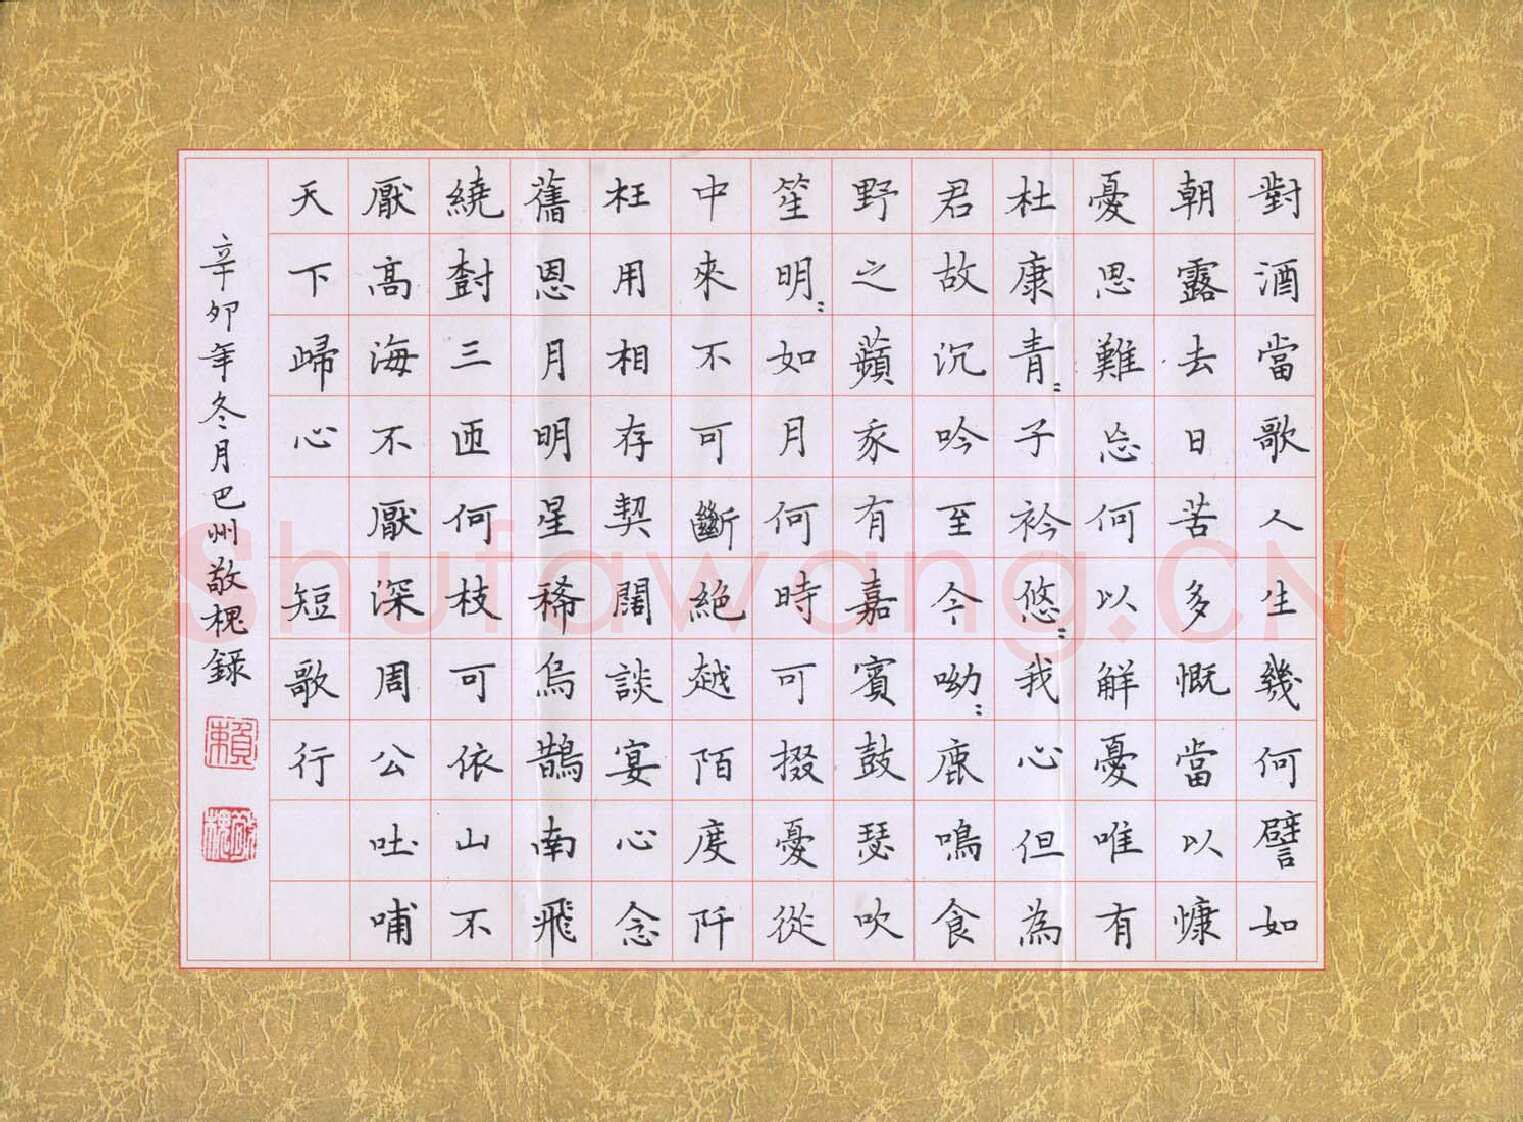 對酒當歌人生幾何譬如
朝露去日苦多慨當以慷
憂思難忘何以解憂唯有
杜康青〻子衿悠〻我心但為
君故沉吟至今呦〻鹿鳴食
野之蘋豕有嘉賓鼓瑟吹
笙明〻如月何時可掇憂從
中來不可斷絕越陌度阡
枉用相存契闊談宴心念
舊恩月明星稀烏鵲南飛
繞樹三匝何枝可依山不
厭高海不厭深周公吐哺
天下歸心 短歌行
辛卯年冬月巴州敬槐錄
賴
敬槐
Shufawang.CN